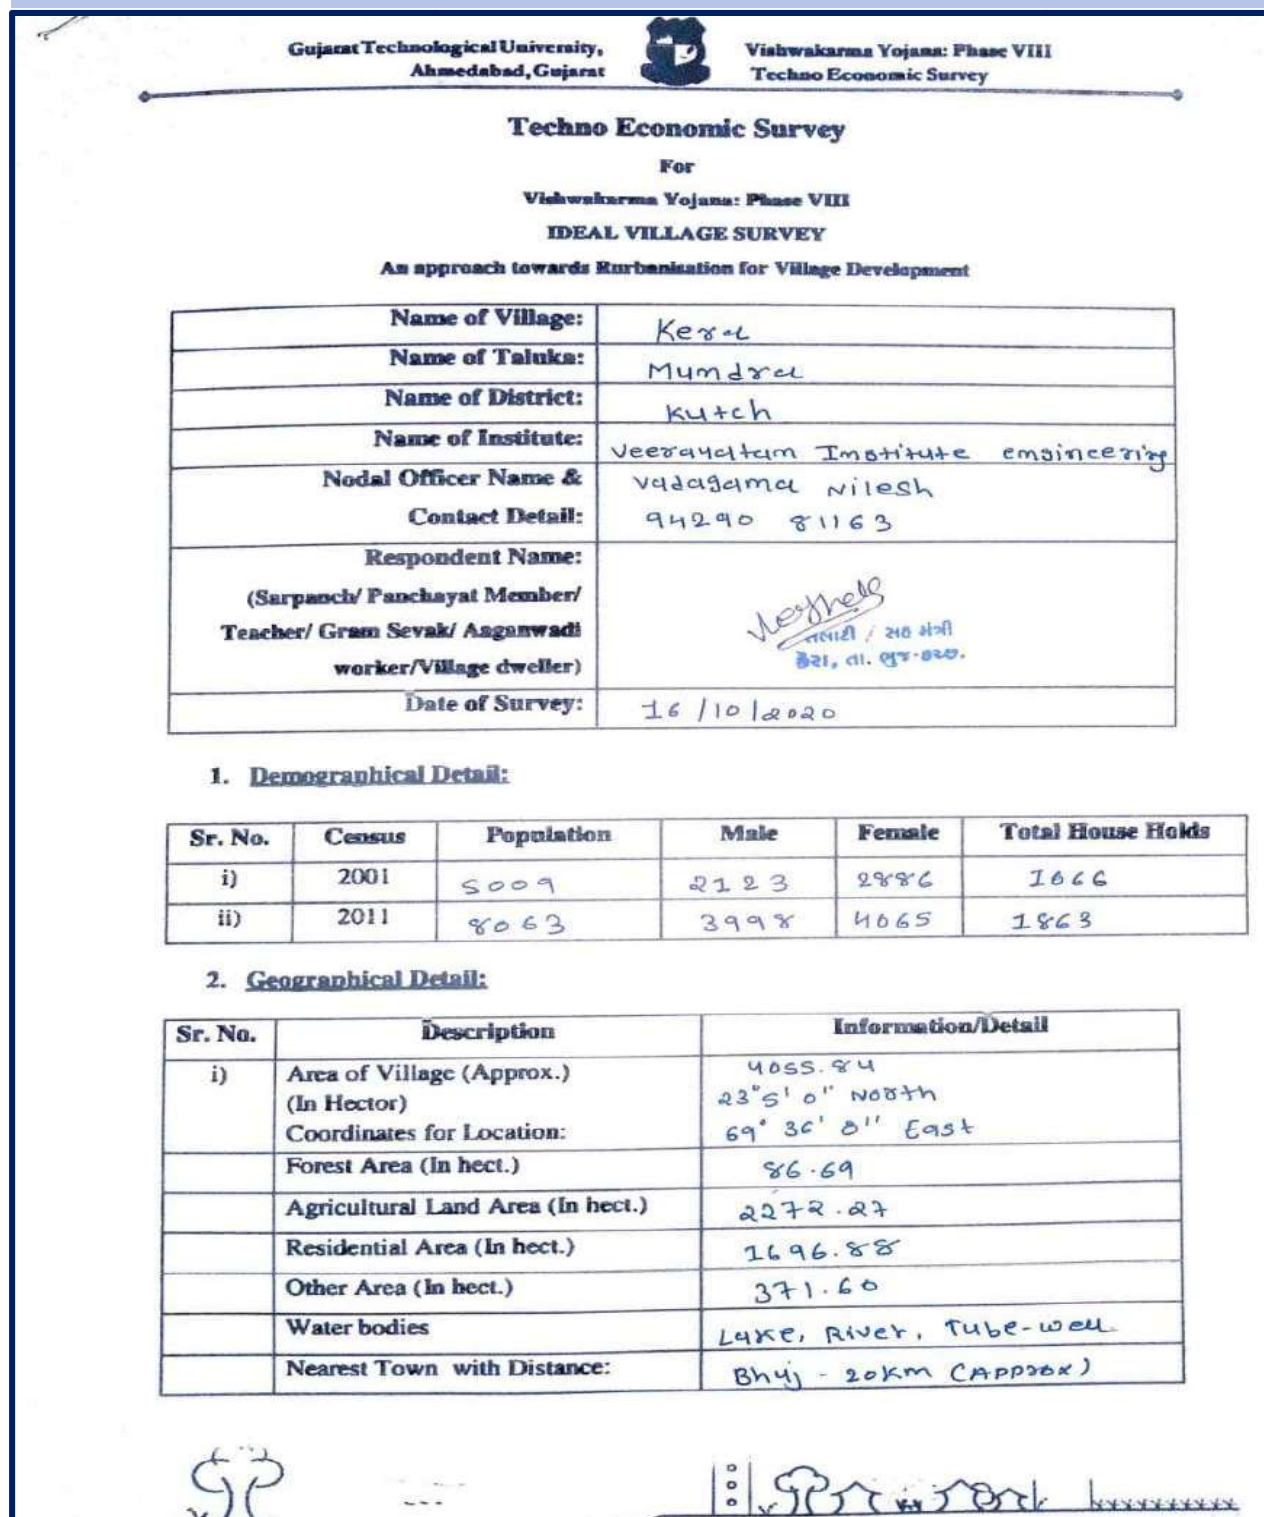 Gujarat Technological University,
Ahmedabad, Gujarat
Vishwakarma Yojana: Phase VIII
Techno Economic Survey
Techno Economic Survey
For
Vishwakarma Yojana: Phase VIII
IDEAL VILLAGE SURVEY
An approach towards Rurbanisation for Village Development
Name of Village: Kera
Name of Taluka: Mundra
Name of District: Kutch
Name of Institute: Veerayatan Institute engineering
Nodal Officer Name & Vadagama Nilesh
Contact Detail: 94290 81163
Respondent Name:
(Sarpanch/ Panchayat Member/
Teacher/ Gram Sevak/ Aaganwadi
worker/Village dweller)
તલાટી / સહ મંત્રી
કેરા, તા. ભુજ-કચ્છ.
Date of Survey: 16/10/2020
1. Demographical Detail:
Sr. No. Census Population Male Female Total House Holds
i) 2001 5009 2123 2886 1066
ii) 2011 8063 3998 4065 1863
2. Geographical Detail:
Sr. No. Description Information/Detail
i) Area of Village (Approx.) 4055.84
(In Hector) 23°5'0" North
Coordinates for Location: 69° 36' 0" East
Forest Area (In hect.) 86.69
Agricultural Land Area (In hect.) 2272.27
Residential Area (In hect.) 1696.88
Other Area (In hect.) 371.60
Water bodies Lake, River, Tube-well
Nearest Town with Distance: Bhuj - 20km (Approx)